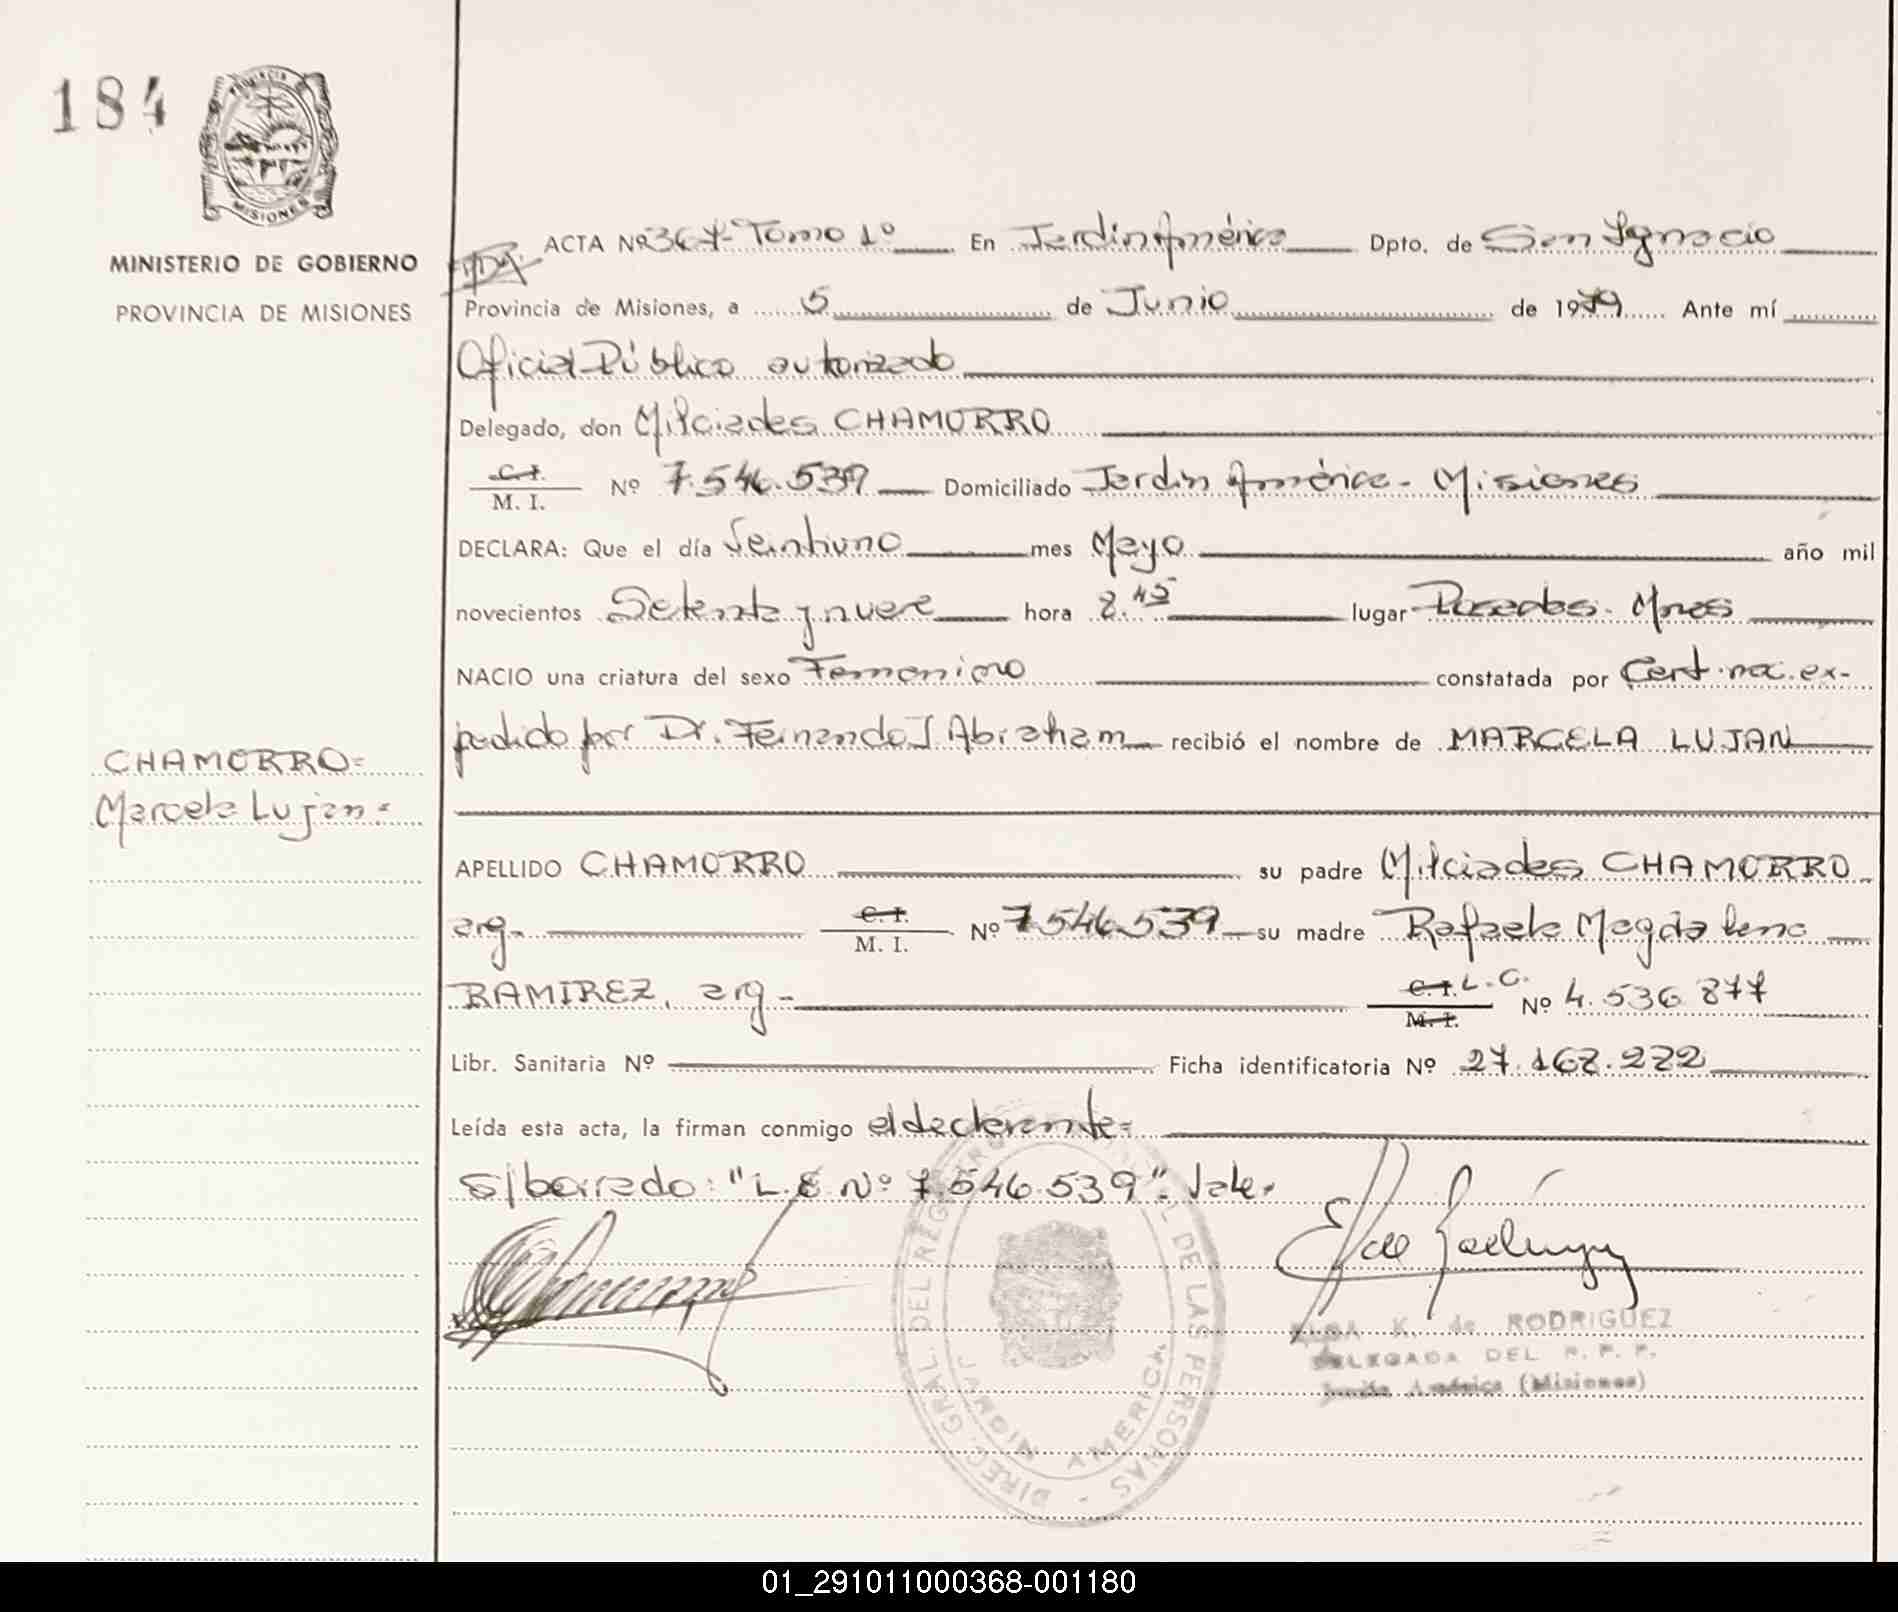 184
PROVINCIA
MISIONES
MINISTERIO DE GOBIERNO
PROVINCIA DE MISIONES
ACTA Nº 367- Tomo 1º En Jardin América Dpto. de San Ignacio
Provincia de Misiones, a 5 de Junio de 1979 Ante mí
Oficial Público autorizado
Delegado, don Milciades CHAMORRO
C.I.
M. I. Nº 7.546.539 Domiciliado Jardin América - Misiones
DECLARA: Que el día Veintiuno mes Mayo año mil
novecientos Setenta y nueve hora 8.45 lugar Posadas. Mnes
NACIO una criatura del sexo Femenino constatada por Cert. nac. ex-
pedido por Dr. Fernando J Abraham recibió el nombre de MARCELA LUJAN
CHAMORRO=
Marcela Lujan=
APELLIDO CHAMORRO su padre Milciades CHAMORRO
arg- C.I. M. I. Nº 7546.539 su madre Rafaela Magdalena
RAMIREZ, arg - C.I. L.C. M.I. Nº 4.536 877
Libr. Sanitaria Nº Ficha identificatoria Nº 27.168.222
Leída esta acta, la firman conmigo el declarante=
s/borrado: "L.E Nº 7.546.539". Vale.
DIREC. GRAL. DEL REG DE LAS PERSONAS
AMERICA
ELSA K. de RODRIGUEZ
DELEGADA DEL R. P. P.
Jardín América (Misiones)
01_291011000368-001180